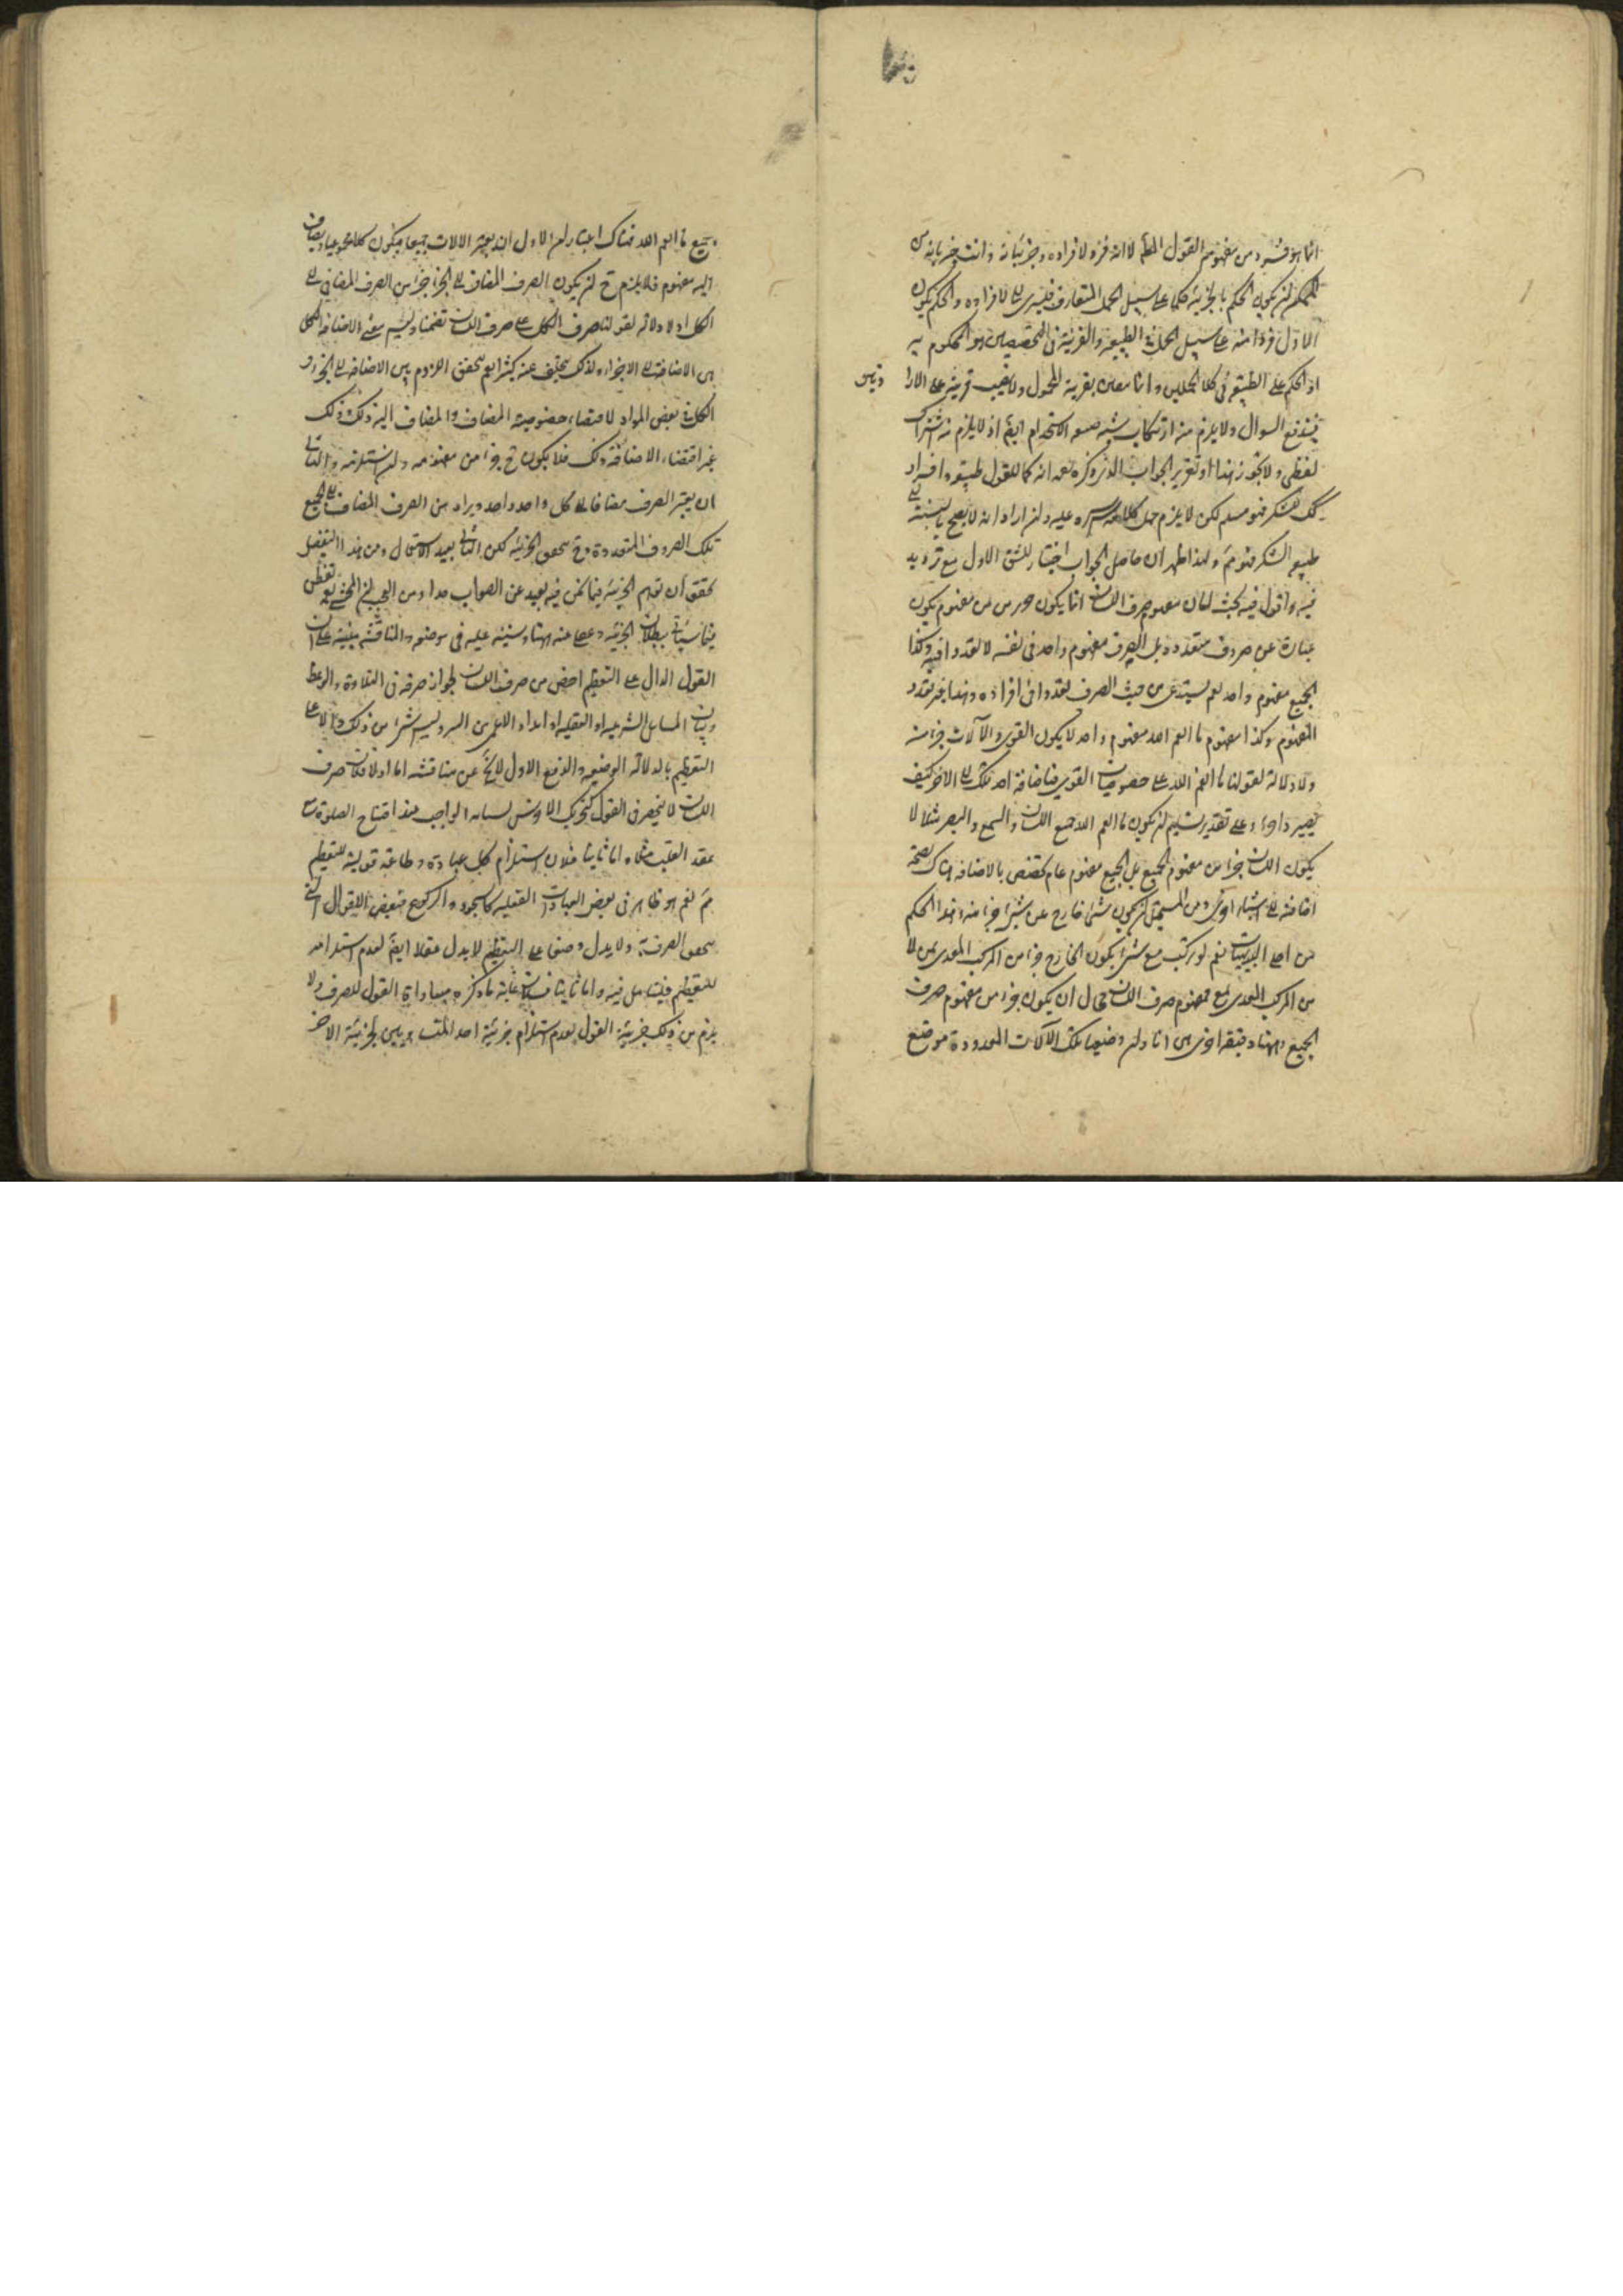 انما هو فرد من مفهوم القول المطلق لا انه فرد لافراده وجزئياته وانت خبير بانه من
الممكن ان يكون الحكم بالجزئية حكما على سبيل الحمل المتعارف فيسرى الى الافراده والحكم بكون
الاول فردا منه على سبيل الحمل على الطبيعة والقرينة في التخصيص هو المحكوم به
اذ الحكم على الطبيعة في كلا الحملين وانما بقرينة المحمول ولا يجب قرينة على الارا
فيندفع السوال ولا يلزم منه ارتكاب شبه صنعة الاستخدام ايضا اذ لا يلزم منه اشتراك
لفظي ولا تجوز هذا او تقرير الجواب الذي ذكره انه كما للقول طبيعة وافراد
كك للشكر فهو مسلم لكن لا يلزم حمل كلامه عليه وان اراد انه لا يصح بالنسبة الى
طبيعة الشكر فهو مم ولهذا ظهر ان حاصل الجواب اختيار للشق الاول مع ترديد
فيه واقول فيه بحث لان مفهوم صرف اللسان انما يكون جزء من مفهوم يكون
عبارة عن صروف متعددة بل الصرف مفهوم واحد في نفسه لا تعدد فيه وكذا
الجميع مفهوم واحد نعم يستدعى من حيث الصرف تعددا في افراده وهذا غير تعدد
المفهوم وكذا مفهوم ما انعم الله مفهوم واحد لا يكون القوى والآلات جزء منه
ولا دلالة لقولنا ما انعم الله على خصوصيات القوى فاضافة احد تلك الى الاخر كيف
يصير داخلا وعلى تقدير تسليم ان يكون ما انعم الله جميع اللسان والسمع والبصر مثلا لا
يكون اللسان جزء من مفهوم الجميع بل الجميع مفهوم عام تخصص بالاضافة هناك لصحة
اضافته الى اشياء اخرى ومن المستحيل ان يكون شئ خارج عن شئ جزء منه وهذا الحكم
من اجلى البديهيات نعم لو ركب مع شئ يكون الخارج جزء من المركب
من المركب مع مفهوم صرف اللسان محال ان يكون جزء من مفهوم صرف
الجميع وههنا دقيقة اخرى هى انا وان وضعنا تلك الآلات المعدودة موضع
جميع ما انعم الله فهناك اعتباران الاول ان يعتبر الالات جميعا فيكون كلا مجموعيا ويضاف
اليه مفهوم فلا يلزم ح ان يكون الصرف المضاف الى الجزء جزء من الصرف المضاف الى
الكل اذ لا دلالة لقولنا صرف الكل على صرف اللسان تضمنا وليس معنى الاضافة الى الكل
هى الاضافة الى الاجزاء ولذلك يتخلف عنه كثيرا نعم تحقق اللزوم بين الاضافة الى الجزء و
الكل في بعض المواد لاقتضاء خصوصية المضاف والمضاف اليه ذلك وذلك
غير اقتضاء الاضافة ذلك فلا يكون ح جزء من مفهومه وان استلزمه والثاني
ان يعتبر الصرف مضافا الى كل واحد واحد ويراد من الصرف المضاف الى الجميع
تلك الصروف المتعددة وح تحقق الجزئية لكن الثاني بعيد الاستعمال ومن هذا التفصيل
تحقق ان توهم الجزئية فيما نحن فيه بعيد عن الصواب جدا ومن العجب ان المحشى تفطن
فيما سياتي ببطلان الجزئية وغفل عنه ههنا وسننبه عليه في موضعه والمناقشة مبنية على ان
القول الدال على التعظيم اخص من صرف اللسان لجواز صرفه في التلاوة والوعظ
وبيان المسائل الشرعية او العقلية او ابداء الامر من السر وليس شئ من ذلك دالا على
التعظيم بالدلالة الوضعية والدفع الاول لا يخ عن مناقشة اما اولا فلان صرف
اللسان لا ينحصر في القول كتحريك الاخرس لسانه الواجب عند افتتاح الصلوة مع
عقد القلب بمعناه واما ثانيا فلان استلزام كل عبادة وطاعة قولية للتعظيم
مم نعم هو ظاهر في بعض العبادات الفعلية كالسجود والركوع فبعض الاقوال التي
تحقق الصرف به ولا يدل وضعا على التعظيم لا يدل عقلا ايضا لعدم استلزامه
للتعظيم فليتامل فيه واما ثالثا فلان غاية ما ذكره مساواة القول للصرف ولا
يلزم من ذلك جزئية القول لعدم استلزام جزئية احد المتساويين لجزئية الاخر